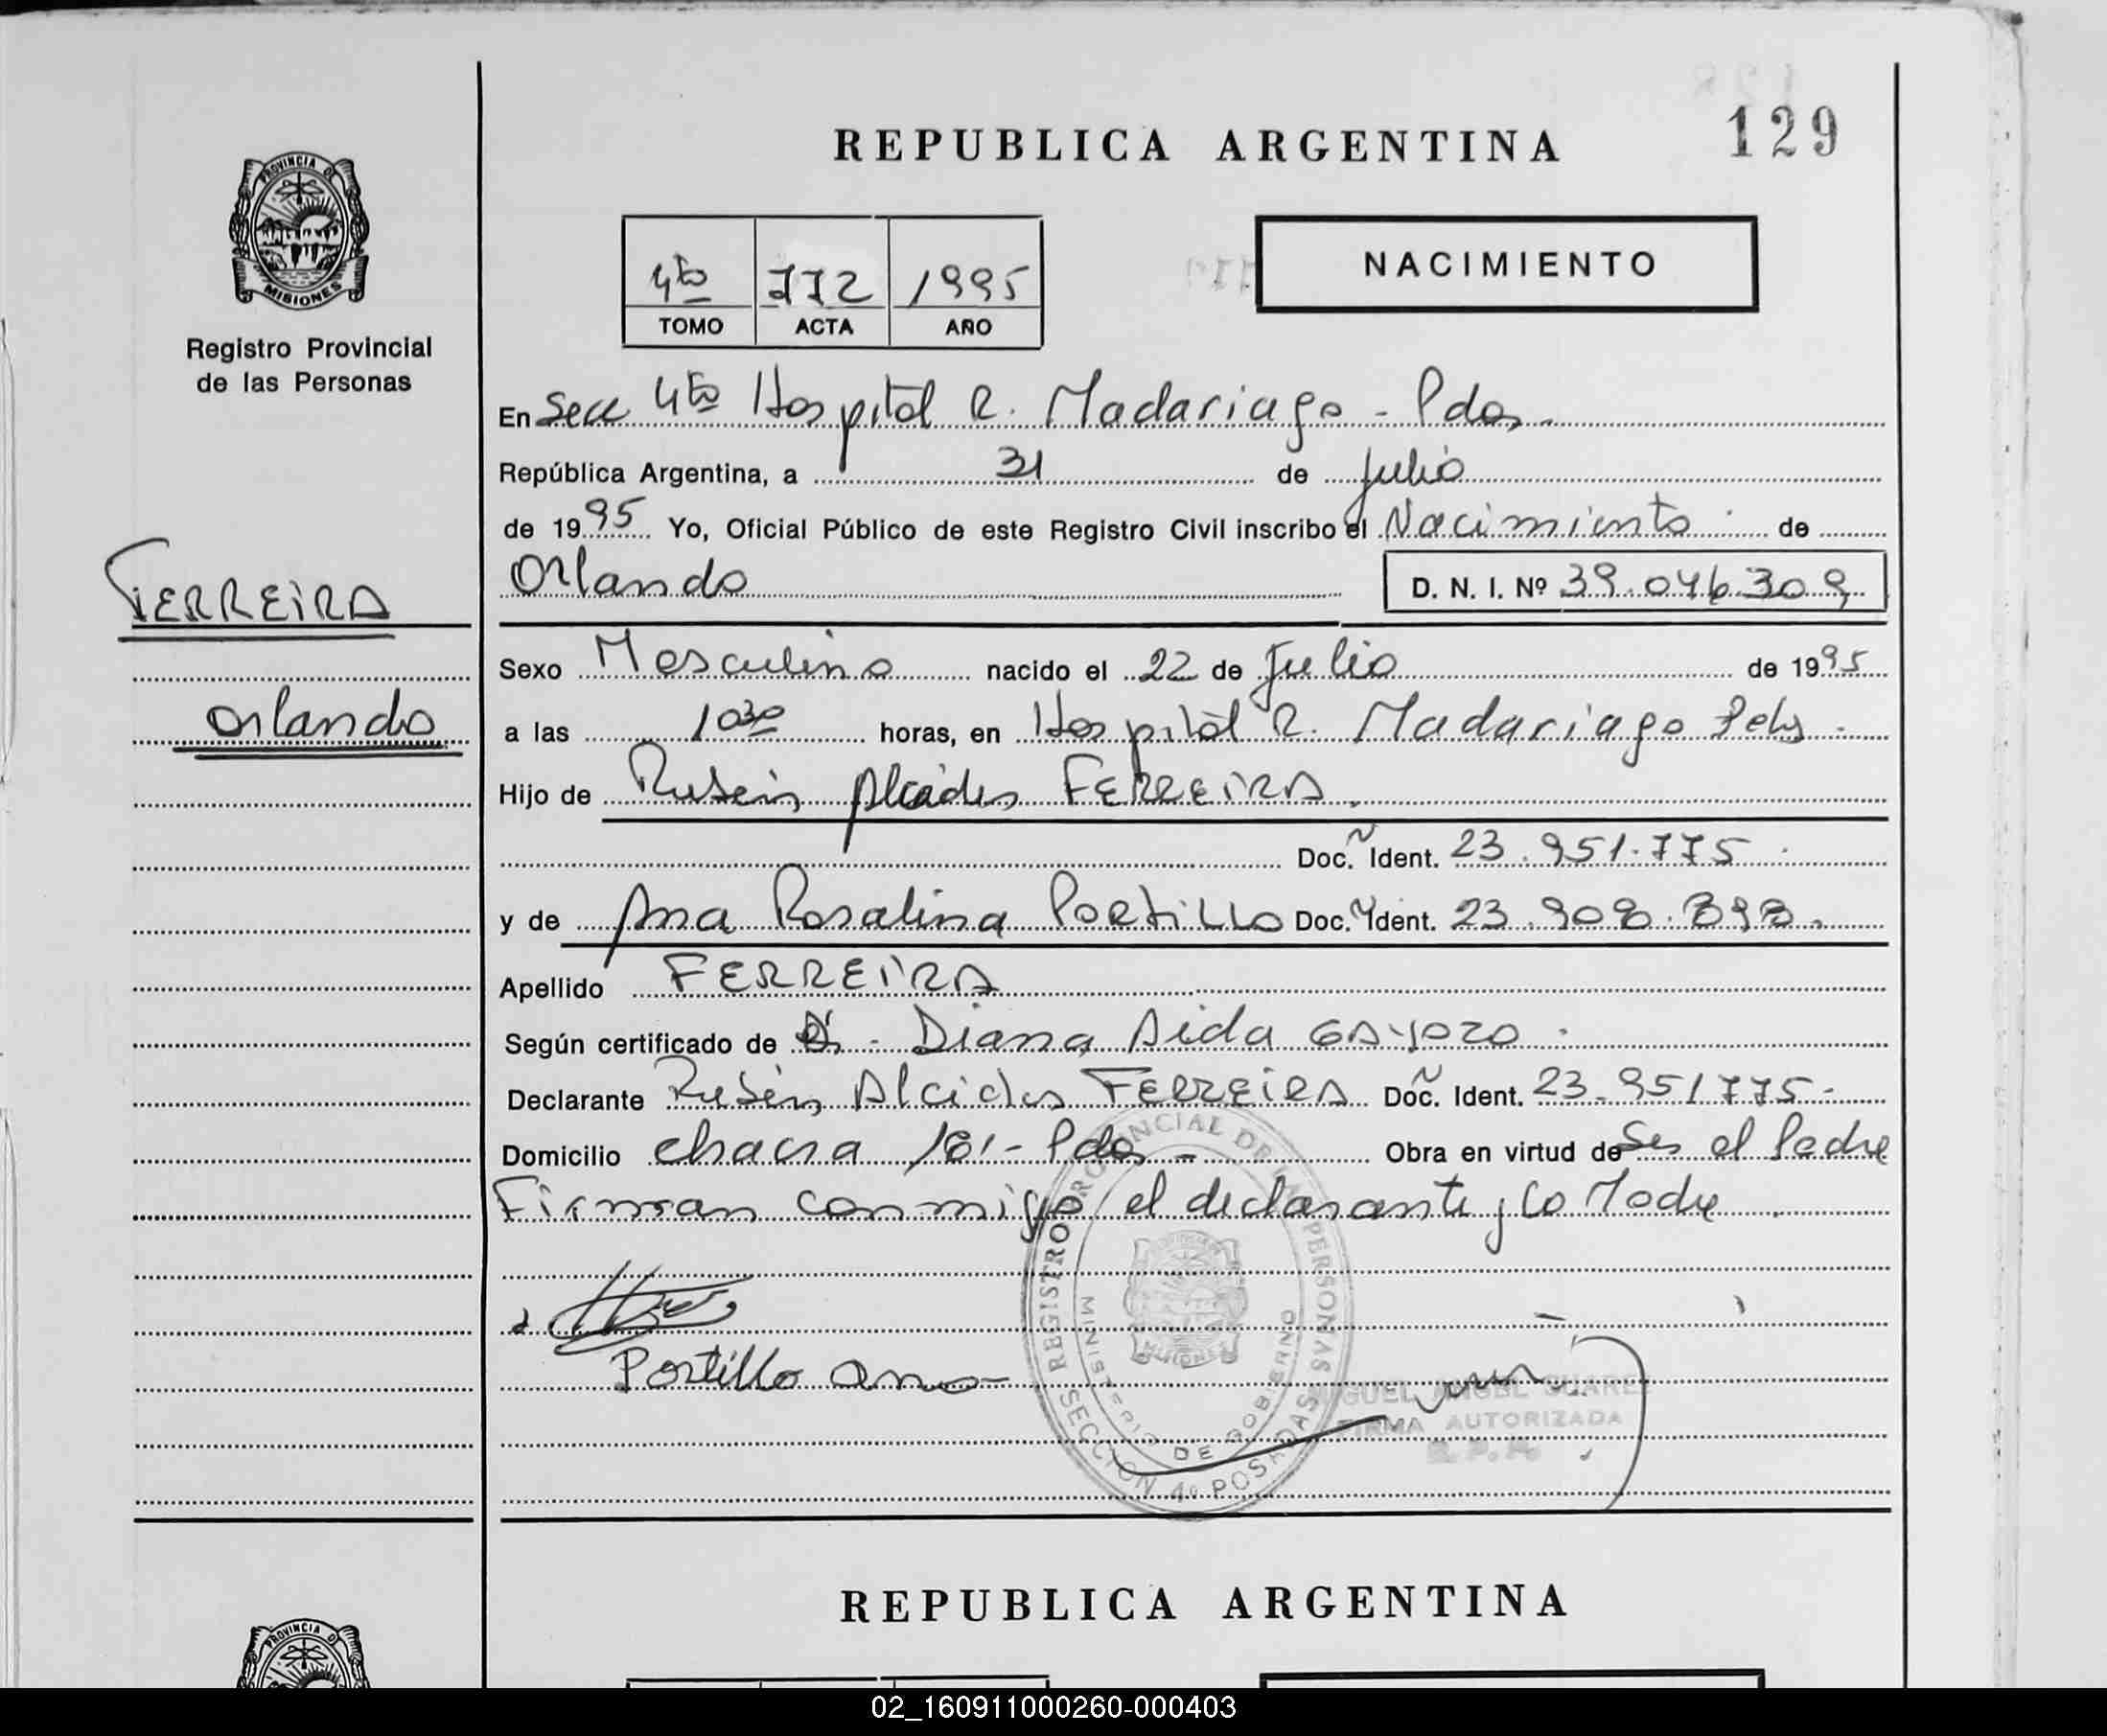 REPUBLICA ARGENTINA
129
PROVINCIA DE
MISIONES
Registro Provincial
de las Personas
4to 772 1995
TOMO ACTA AÑO
NACIMIENTO
En Secc 4to Hospital R. Madariaga - Pdas.
República Argentina, a 31 de Julio
de 1995 Yo, Oficial Público de este Registro Civil inscribo el Nacimiento de
Orlando D. N. I. Nº 39.046.309
FERREIRA
Orlando
Sexo Masculino nacido el 22 de Julio de 1995
a las 1030 horas, en Hospital R. Madariaga
Hijo de Rubén Alcides FERREIRA.
Doc. Ident. 23.951.775
y de Ana Rosalina Portillo Doc. Ident. 23.908.898.
Apellido FERREIRA
Según certificado de Diana Aida GAYOZO
Declarante Rubén Alcides FERREIRA Doc. Ident. 23.951775-
Domicilio chacra 181- Pdas - Obra en virtud de Ser el Padre
Firman conmigo el declarante y la Madre
Portillo Ana
REGISTRO PROVINCIAL DE LAS PERSONAS
MINISTERIO DE GOBIERNO
SECCION 4º POSADAS
MISIONES
MIGUEL ANGEL SUAREZ
FIRMA AUTORIZADA
R. P. P.
REPUBLICA ARGENTINA
PROVINCIA DE
02_160911000260-000403